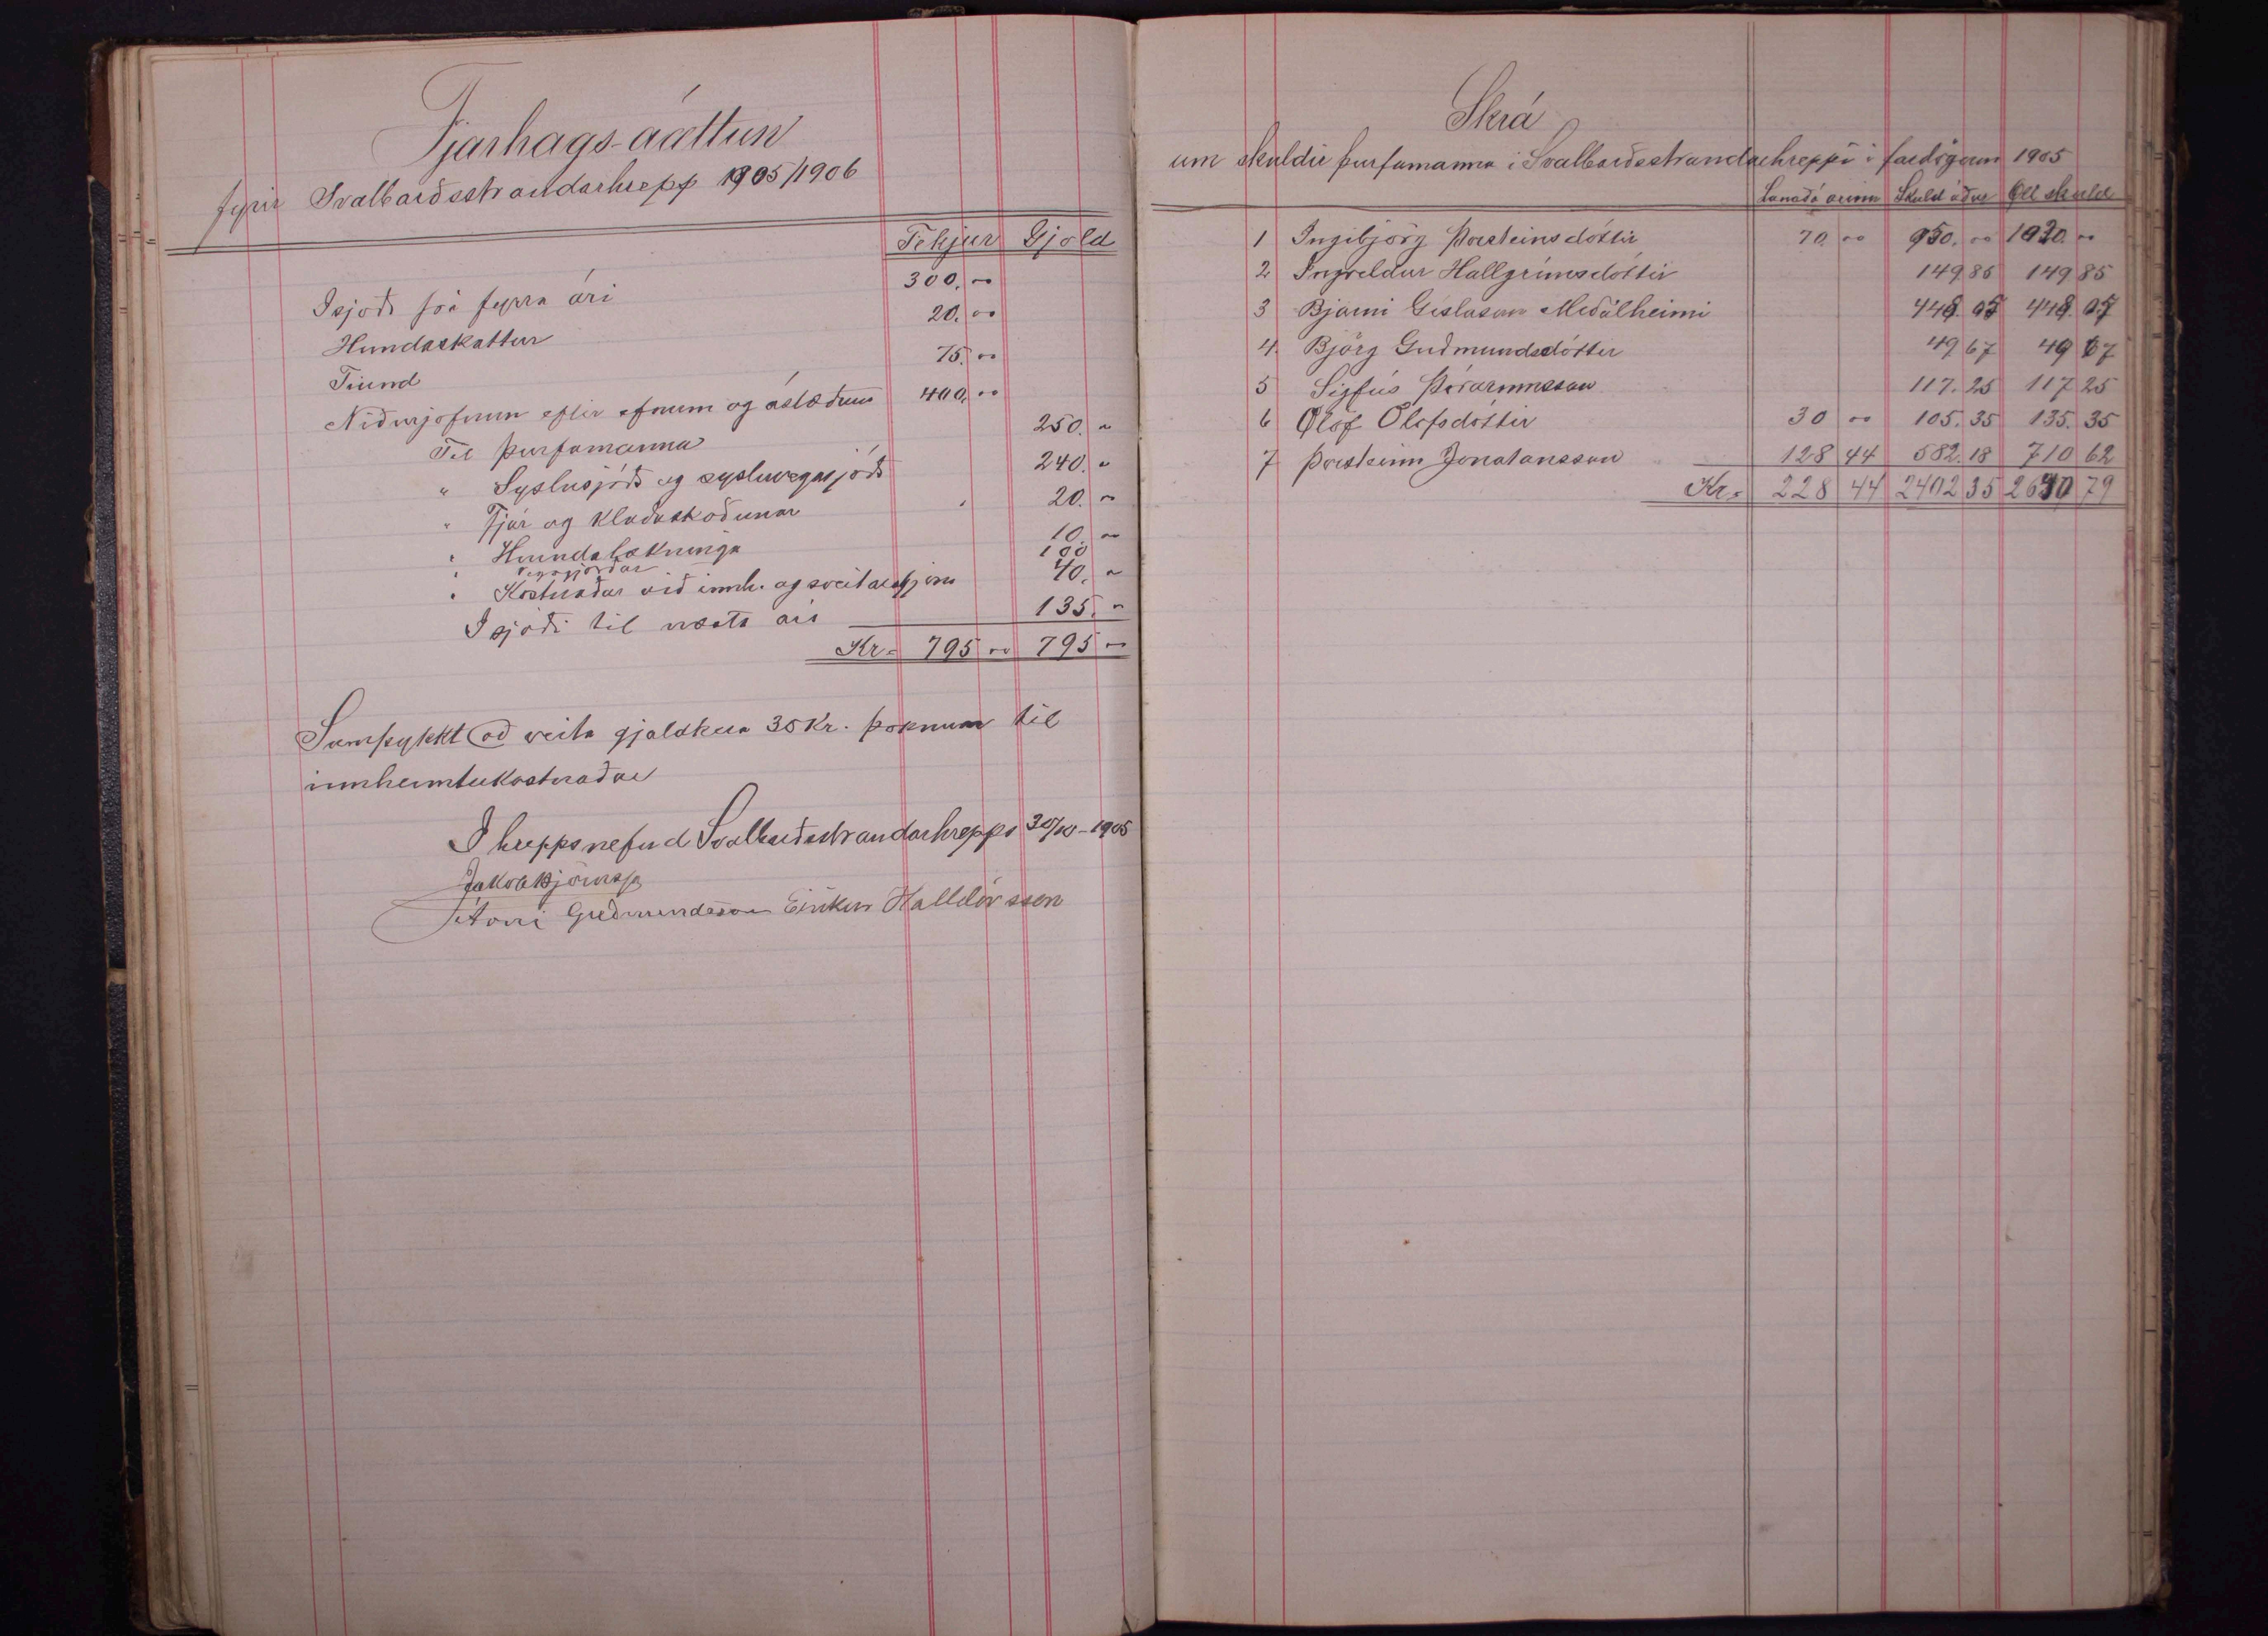 Fjárhags-áætlun
fyrir Svalbarðsstrandarhrepp 1905/1906
Tekjur Gjöld
Í sjóði frá fyrra ári 300,"
Hundaskattur 20."
Tíund 75."
Niðurjöfnun eftir efnum og ástæðum 400,"
Til þurfamanna 250. "
" Sýslusjóðs og sýsluvegasjóðs 240. "
" Fjár og kláðaskoðunar 20. "
" Hundalækninga 10. "
" Vegagjörðar 100
" Kostnaðar við innh. og sveitarstjórn 40. "
Í sjóði til næsta árs 135. "
Kr. 795 " 795 "
Samþykkt að veita gjaldkera 35 Kr. þóknun til
innheimtukostnaðar
Í hreppsnefnd Svalbarðsstrandarhrepps 30/10-1905
Jakob Björnss
Árni Guðmundsson Eiríkur Halldórsson
Skrá
um skuldir þurfamanna í Svalbarðsstrandarhreppi í fardögum 1905
Lánað á árinu Skuld áður Öll skuld
1 Ingibjörg Þorsteinsdóttir 70 " 950. " 1020. "
2 Ingveldur Hallgrímsdóttir 149 85 149 85
3 Bjarni Gíslason Meðalheimi 448. 05 448. 05
4. Björg Guðmundsdóttir 49 67 49 67
5 Sigfús Þórarinnsson 117. 25 117 25
6 Ólöf Ólafsdóttir 30 " 105. 35 135. 35
7 Þorsteinn Jónatansson 128 44 582. 18 710 62
Kr. 228 44 2402 35 2630 79